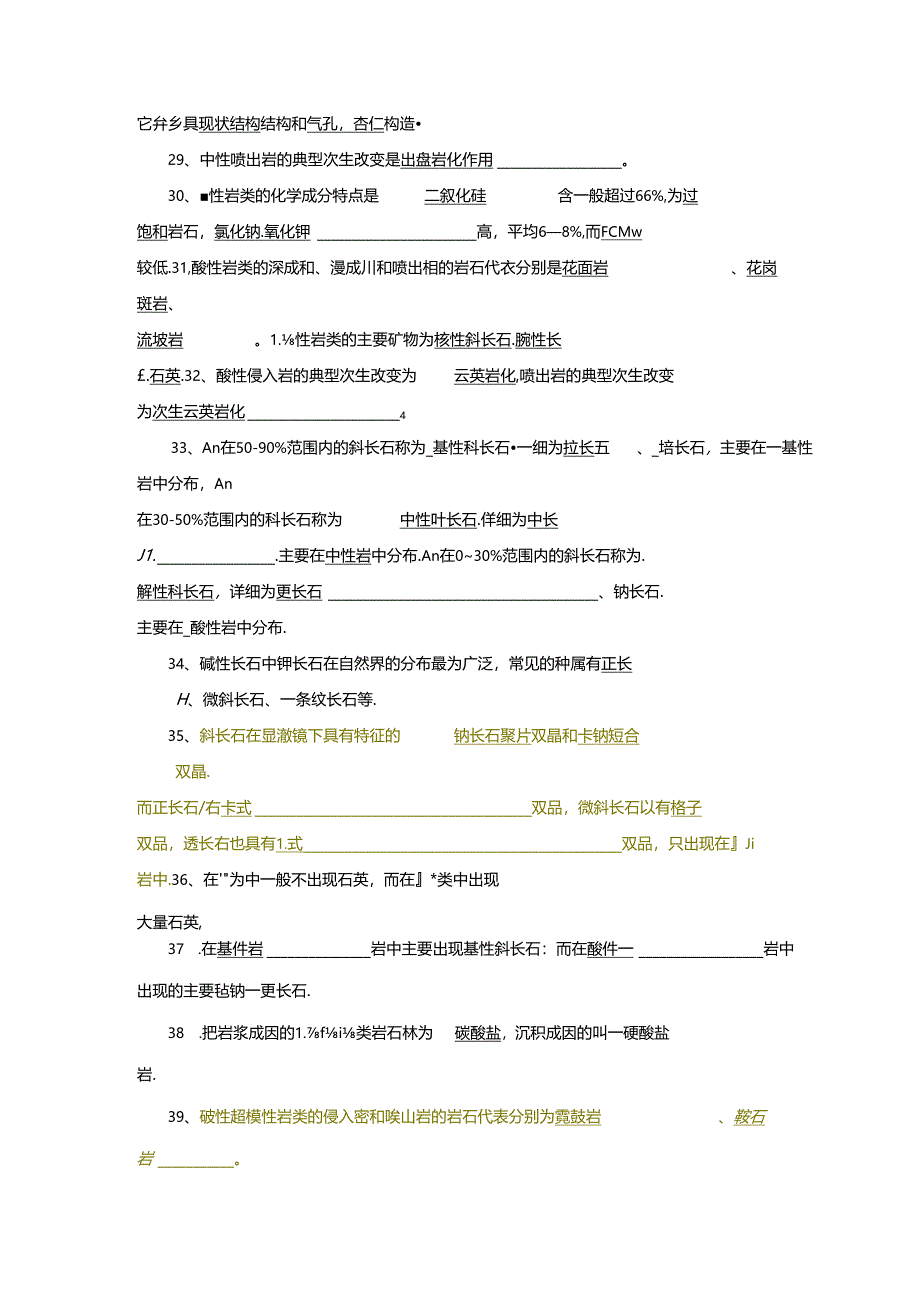 它弁乡具现状结构结构和气孔，杏仁构造•
29、中性喷出岩的典型次生改变是出盘岩化作用 ________________。
30、■性岩类的化学成分特点是 二叙化硅 含一般超过66%,为过
饱和岩石，氯化钠.氧化钾 ____________________高，平均6—8%,而FCMw
较低.31,酸性岩类的深成和、漫成川和喷出相的岩石代衣分别是花面岩 、花岗
斑岩、
流坡岩 。1.⅛性岩类的主要矿物为核性斜长石.腕性长
£.石英.32、酸性侵入岩的典型次生改变为 云英岩化,喷出岩的典型次生改变
为次生云英岩化___________________4
33、An在50-90%范围内的斜长石称为_基性科长石•一细为拉长五 、_培长石，主要在一基性
岩中分布，An
在30-50%范围内的科长石称为 中性叶长石.佯细为中长
J1._______________.主要在中性岩中分布.An在0~30%范围内的斜长石称为.
解性科长石，详细为更长石 __________________________________、钠长石.
主要在_酸性岩中分布.
34、碱性长石中钾长石在自然界的分布最为广泛，常见的种属有正长
H、微斜长石、一条纹长石等.
35、斜长石在显澈镜下具有特征的 钠长石聚片双晶和卡钠短合
双晶.
而正长石/右卡式___________________________________双品，微斜长石以有格子
双品，透长右也具有1.式________________________________________双品，只出现在』Ji
岩中.36、在'"为中一般不出现石英，而在』*类中出现
大量石英,
37 .在基件岩 _____________岩中主要出现基性斜长石：而在酸件一 ________________岩中
出现的主要毡钠一更长石.
38 .把岩浆成因的1.⅞f⅛i⅛类岩石林为 碳酸盐，沉积成因的叫一硬酸盐
岩.
39、破性超模性岩类的侵入密和唉山岩的岩石代表分别为霓鼓岩 、鞍石
岩 __________。